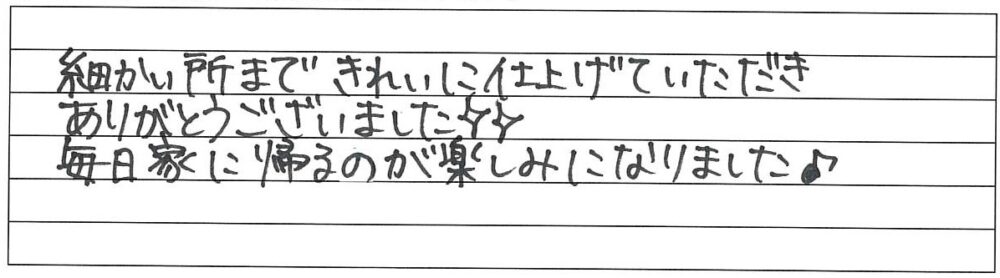 細かい所まできれいに仕上げていただき
ありがとうございました✧✧
毎日家に帰るのが楽しみになりました♪